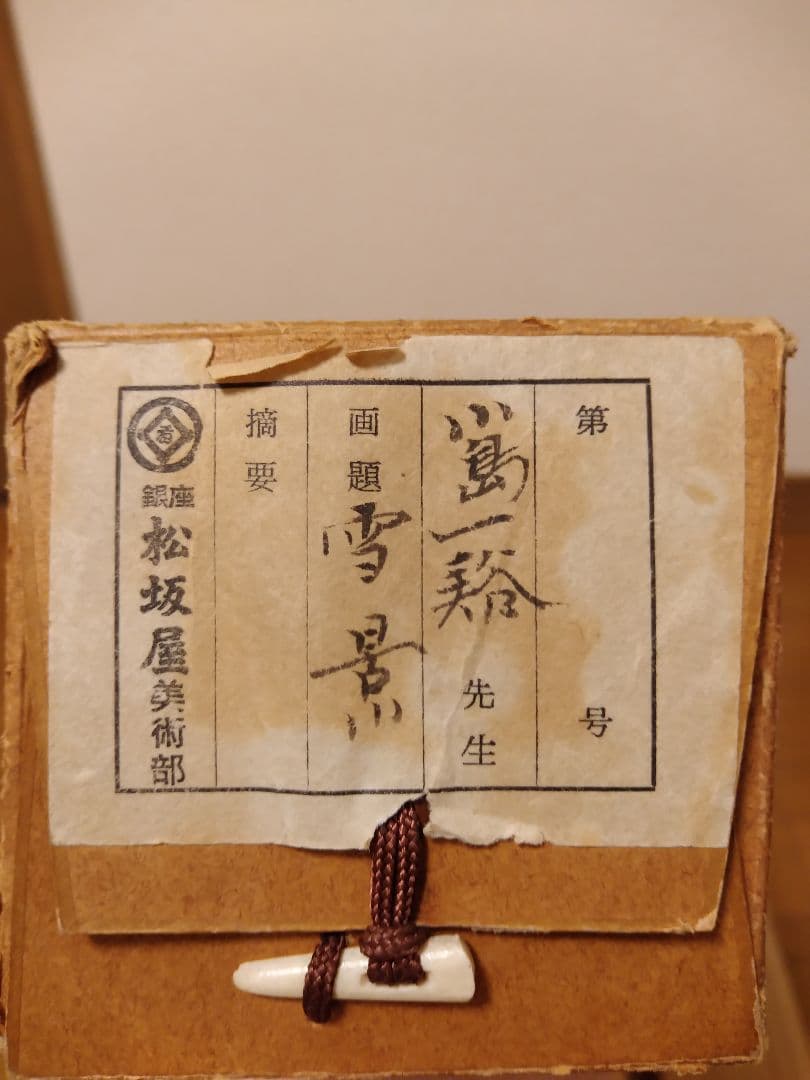 第 号
小島一谿 先生
画題 雪景
摘要
銀座 松坂屋美術部